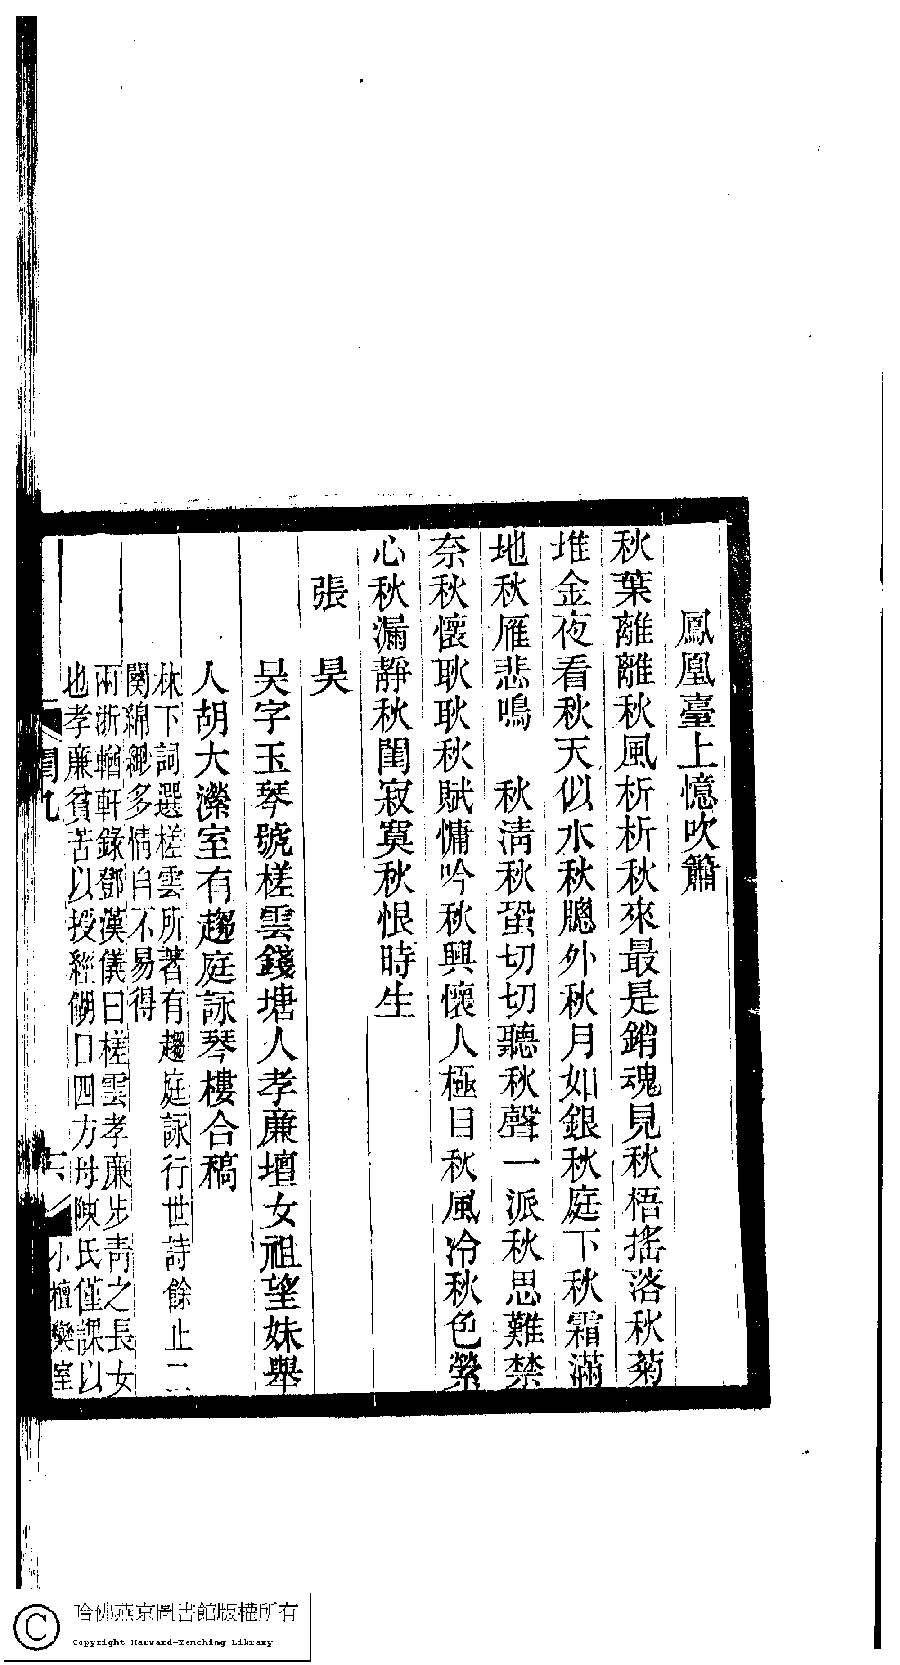 鳳凰臺上憶吹簫
秋葉離離秋風析析秋來最是銷魂見秋梧搖落秋菊
堆金夜看秋天似水秋牕外秋月如銀秋庭下秋霜滿
地秋雁悲鳴　秋淸秋蛩切切聽秋聲一派秋思難禁
奈秋懷耿耿秋賦慵吟秋興懷人極目秋風冷秋色縈
心秋漏靜秋閨寂寞秋恨時生
張　昊
吴字玉琴號槎雲錢塘人孝廉壇女祖望妹舉
人胡大瀠室有趨庭詠琴樓合稿
林下詞選槎雲所著有趨庭詠行世詩餘止二
闋綿纏多情自不易得
兩浙輶軒錄鄧漢儀曰槎雲孝廉步靑之長女
也孝廉貧苦以授經餬口四方母陳氏僅課以
閨九
六
小檀欒室
哈佛燕京圖書館版權所有
Copyright Harvard-Yenching Library